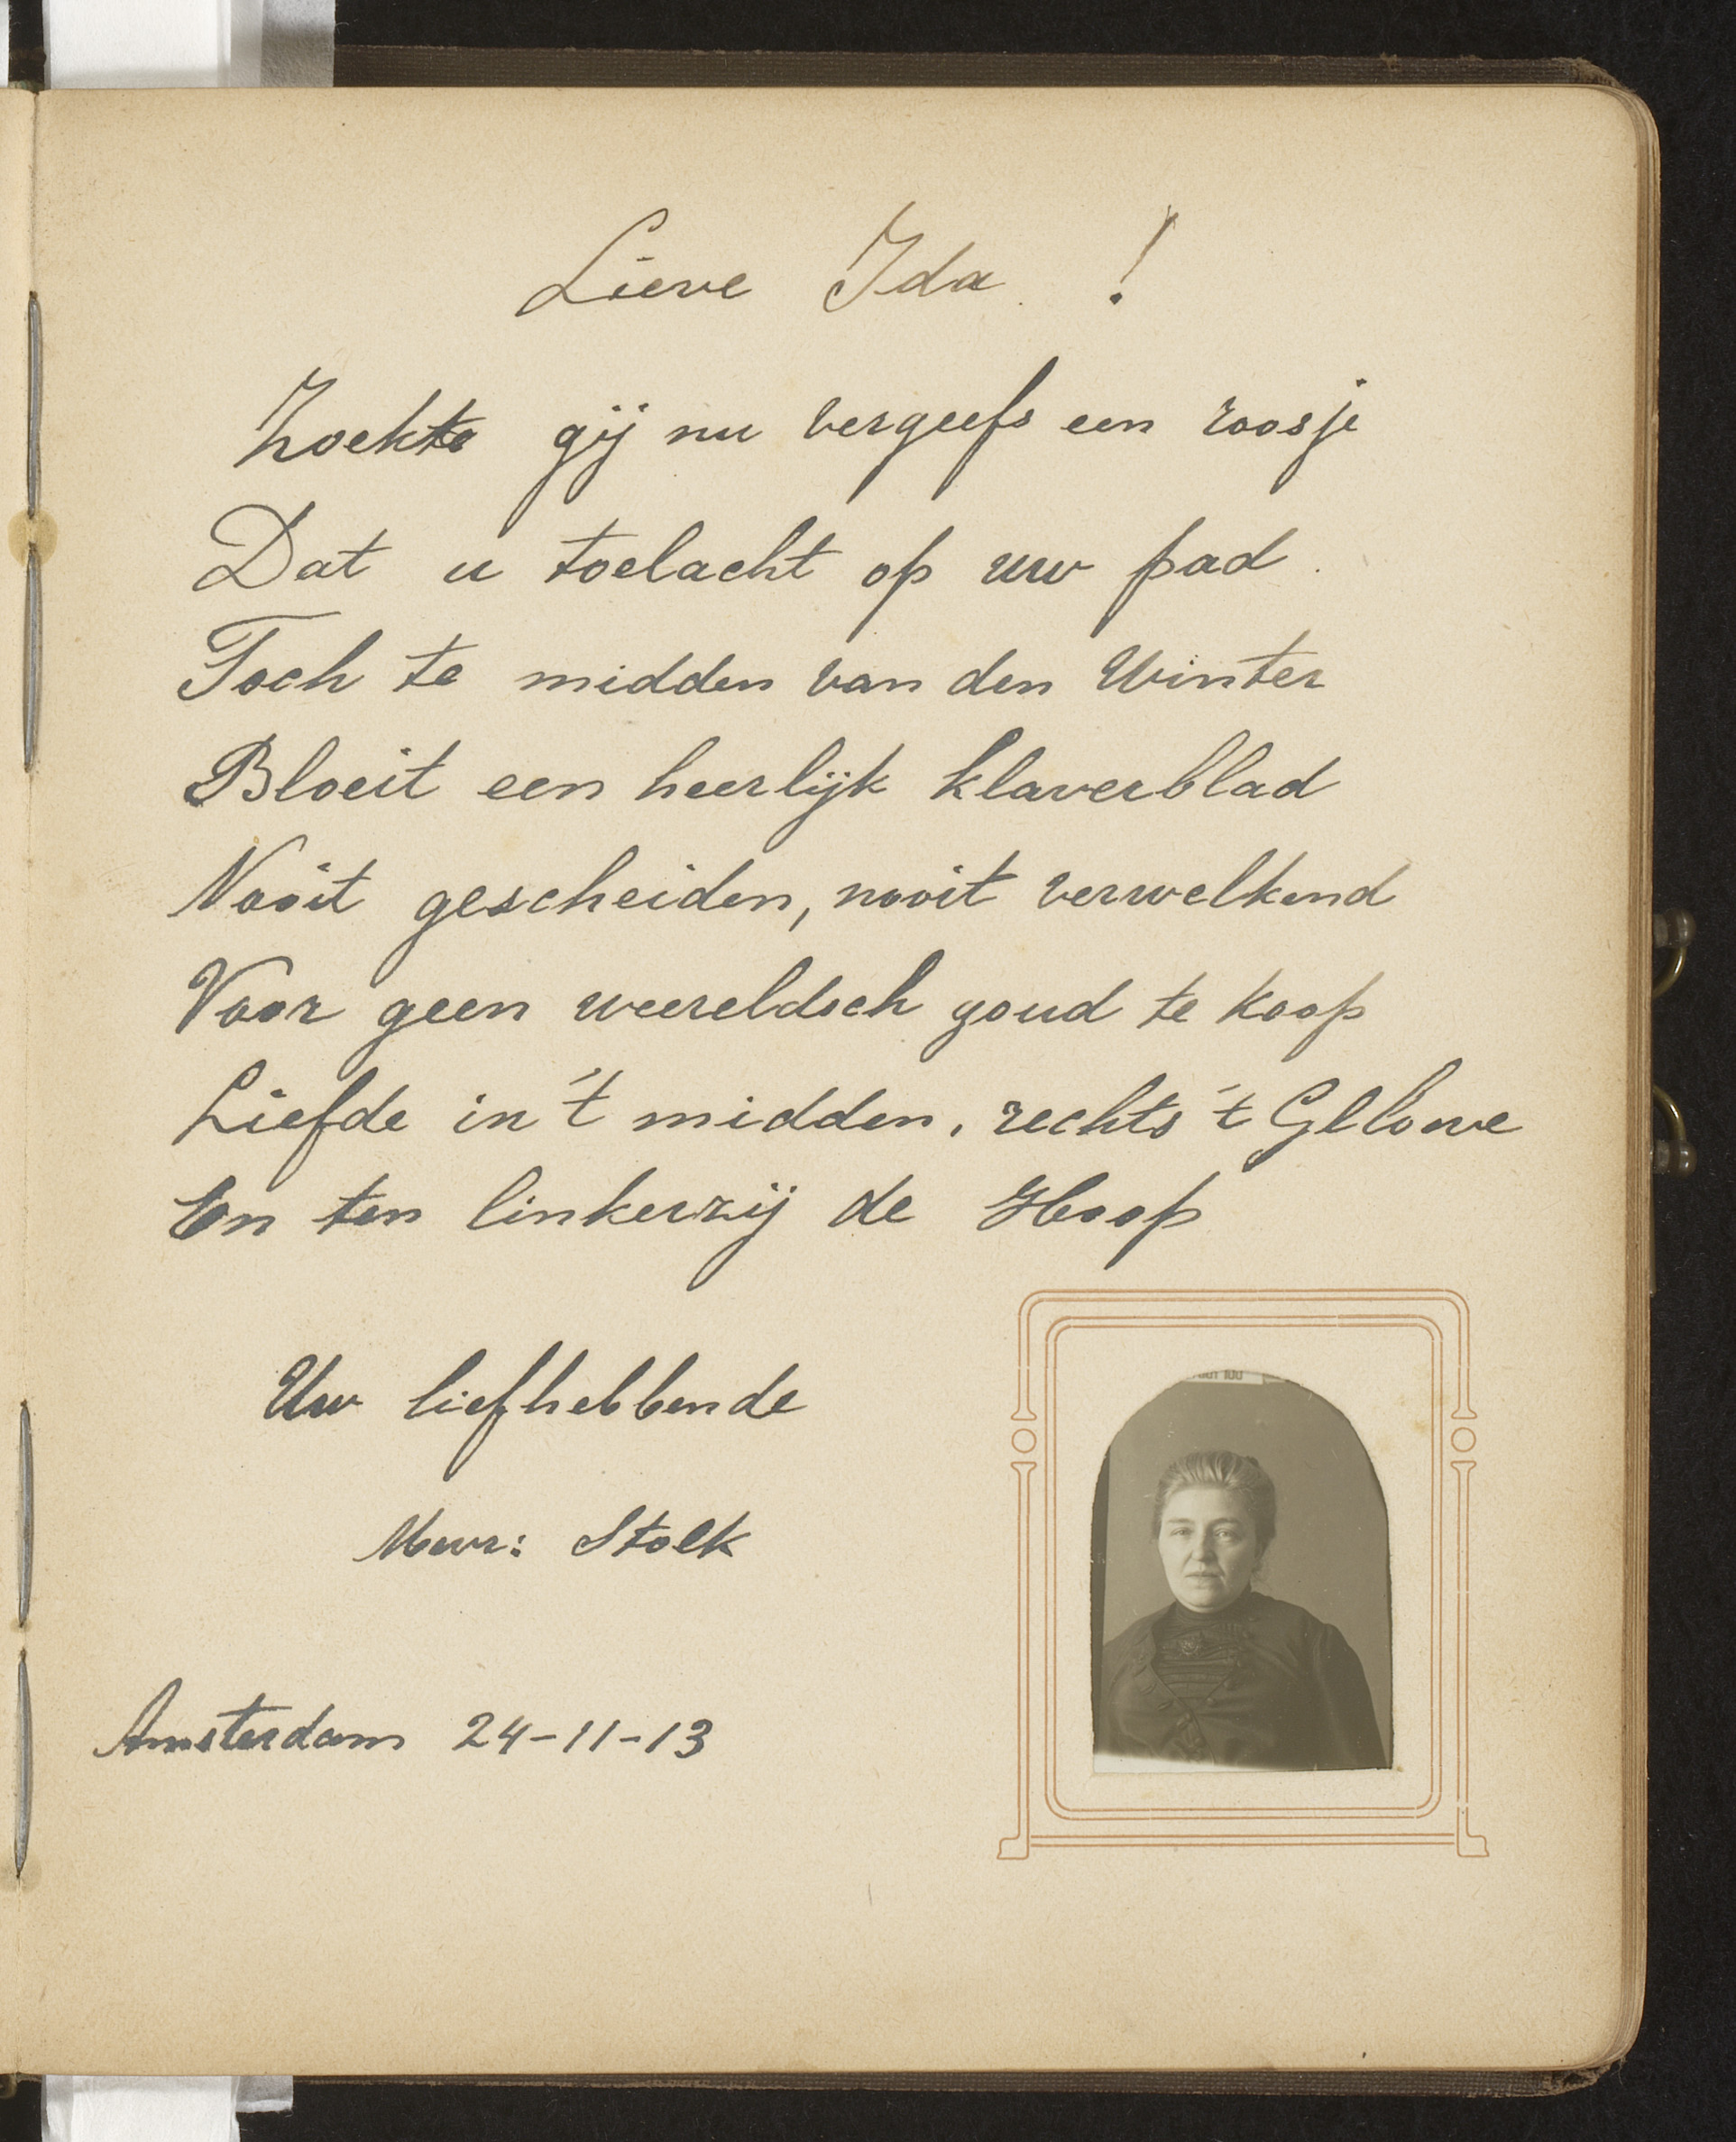 Lieve Ida !
Zoekte gij nu vergeefs een roosje
Dat u toelacht op uw pad.
Toch te midden van den Winter
Bloeit een heerlijk klaverblad
Nooit gescheiden, nooit verwelkend
Voor geen weereldsch goud te koop
Liefde in 't midden, rechts 't Geloove
En ten linkerzij de Hoop
Uw liefhebbende
Mevr: Stolk
Amsterdam 24-11-13